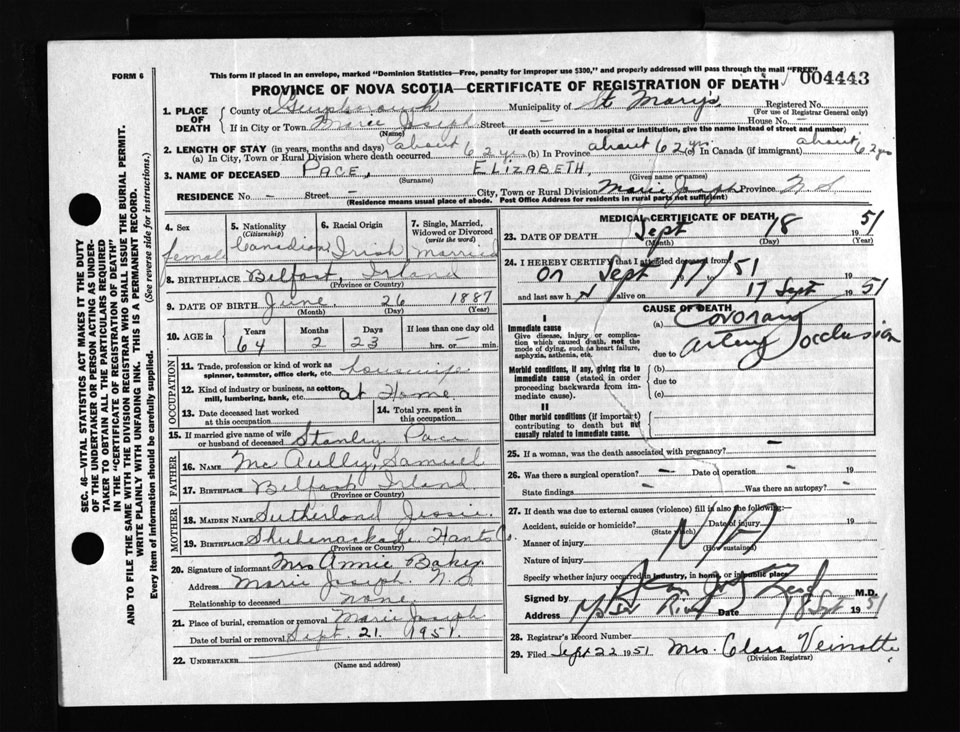 FORM 6
This form if placed in an envelope, marked "Dominion Statistics—Free, penalty for improper use $300," and properly addressed will pass through the mail "FREE"
004443
PROVINCE OF NOVA SCOTIA—CERTIFICATE OF REGISTRATION OF DEATH
1. PLACE OF DEATH
County of Guysborough Municipality of St Mary's Registered No.
(For use of Registrar General only)
If in City or Town Marie Joseph Street — House No. —
(Name) (If death occurred in a hospital or institution, give the name instead of street and number)
2. LENGTH OF STAY (in years, months and days)
(a) In City, Town or Rural Division where death occurred about 62 yrs (b) In Province about 62 yrs. (c) In Canada (if immigrant) about 62 yrs
3. NAME OF DECEASED PACE, ELIZABETH,
(Surname) (Given name or names)
RESIDENCE No. — Street — City, Town or Rural Division Marie Joseph Province N S
(Residence means usual place of abode. Post Office Address for residents in rural parts not sufficient)
4. Sex female
5. Nationality (Citizenship) Canadian
6. Racial Origin Irish
7. Single, Married, Widowed or Divorced (write the word) Married
8. BIRTHPLACE Belfast, Irland
(Province or Country)
9. DATE OF BIRTH June 26 1887
(Month) (Day) (Year)
10. AGE in Years 64 Months 2 Days 23 If less than one day old
hrs. — min.
OCCUPATION
11. Trade, profession or kind of work as spinner, teamster, office clerk, etc. housewife
12. Kind of industry or business, as cotton-mill, lumbering, bank, etc. at Home
13. Date deceased last worked at this occupation
14. Total yrs. spent in this occupation
15. If married give name of wife or husband of deceased Stanley Pace
FATHER
16. NAME Mc Aully, Samuel
17. BIRTHPLACE Belfast Irland
(Province or Country)
MOTHER
18. MAIDEN NAME Sutherland Jessie
19. BIRTHPLACE Shubenackadie Hants Co.
(Province or Country)
20. Signature of informant Mrs Annie Baker
Address Marie Joseph. N.S
Relationship to deceased none
21. Place of burial, cremation or removal Marie Joseph
Date of burial or removal Sept. 21. 1951.
22. UNDERTAKER
(Name and address)
MEDICAL CERTIFICATE OF DEATH
23. DATE OF DEATH Sept 18 1951
(Month) (Day) (Year)
24. I HEREBY CERTIFY that I attended deceased from
On Sept 17/51 19
and last saw h alive on 17 Sept 1951
CAUSE OF DEATH
I
Immediate cause
Give disease, injury or complication which caused death, not the mode of dying, such as heart failure, asphyxia, asthenia, etc.
(a) Coronary
due to artery occlusion
Morbid conditions, if any, giving rise to immediate cause (stated in order proceeding backwards from immediate cause).
(b)
due to
(c)
II
Other morbid conditions (if important) contributing to death but not causally related to immediate cause.
25. If a woman, was the death associated with pregnancy? —
26. Was there a surgical operation? — Date of operation — 19
State findings — Was there an autopsy? —
27. If death was due to external causes (violence) fill in also the following:
Accident, suicide or homicide? Date of injury 19
(State which)
Manner of injury
(How sustained)
Nil
Nature of injury
Specify whether injury occurred in industry, in home, or in public place
Signed by M.D.
Address Date Sept 1951
28. Registrar's Record Number
29. Filed Sept 22 1951 Mrs. Clara Veinotte
(Division Registrar)
SEC. 46—VITAL STATISTICS ACT MAKES IT THE DUTY
OF THE UNDERTAKER OR PERSON ACTING AS UNDER-
TAKER TO OBTAIN ALL THE PARTICULARS REQUIRED
IN THE "CERTIFICATE OF REGISTRATION OF DEATH"
AND TO FILE THE SAME WITH THE DIVISION REGISTRAR WHO SHALL ISSUE THE BURIAL PERMIT.
WRITE PLAINLY WITH UNFADING INK. THIS IS A PERMANENT RECORD.
Every item of information should be carefully supplied. (See reverse side for instructions.)